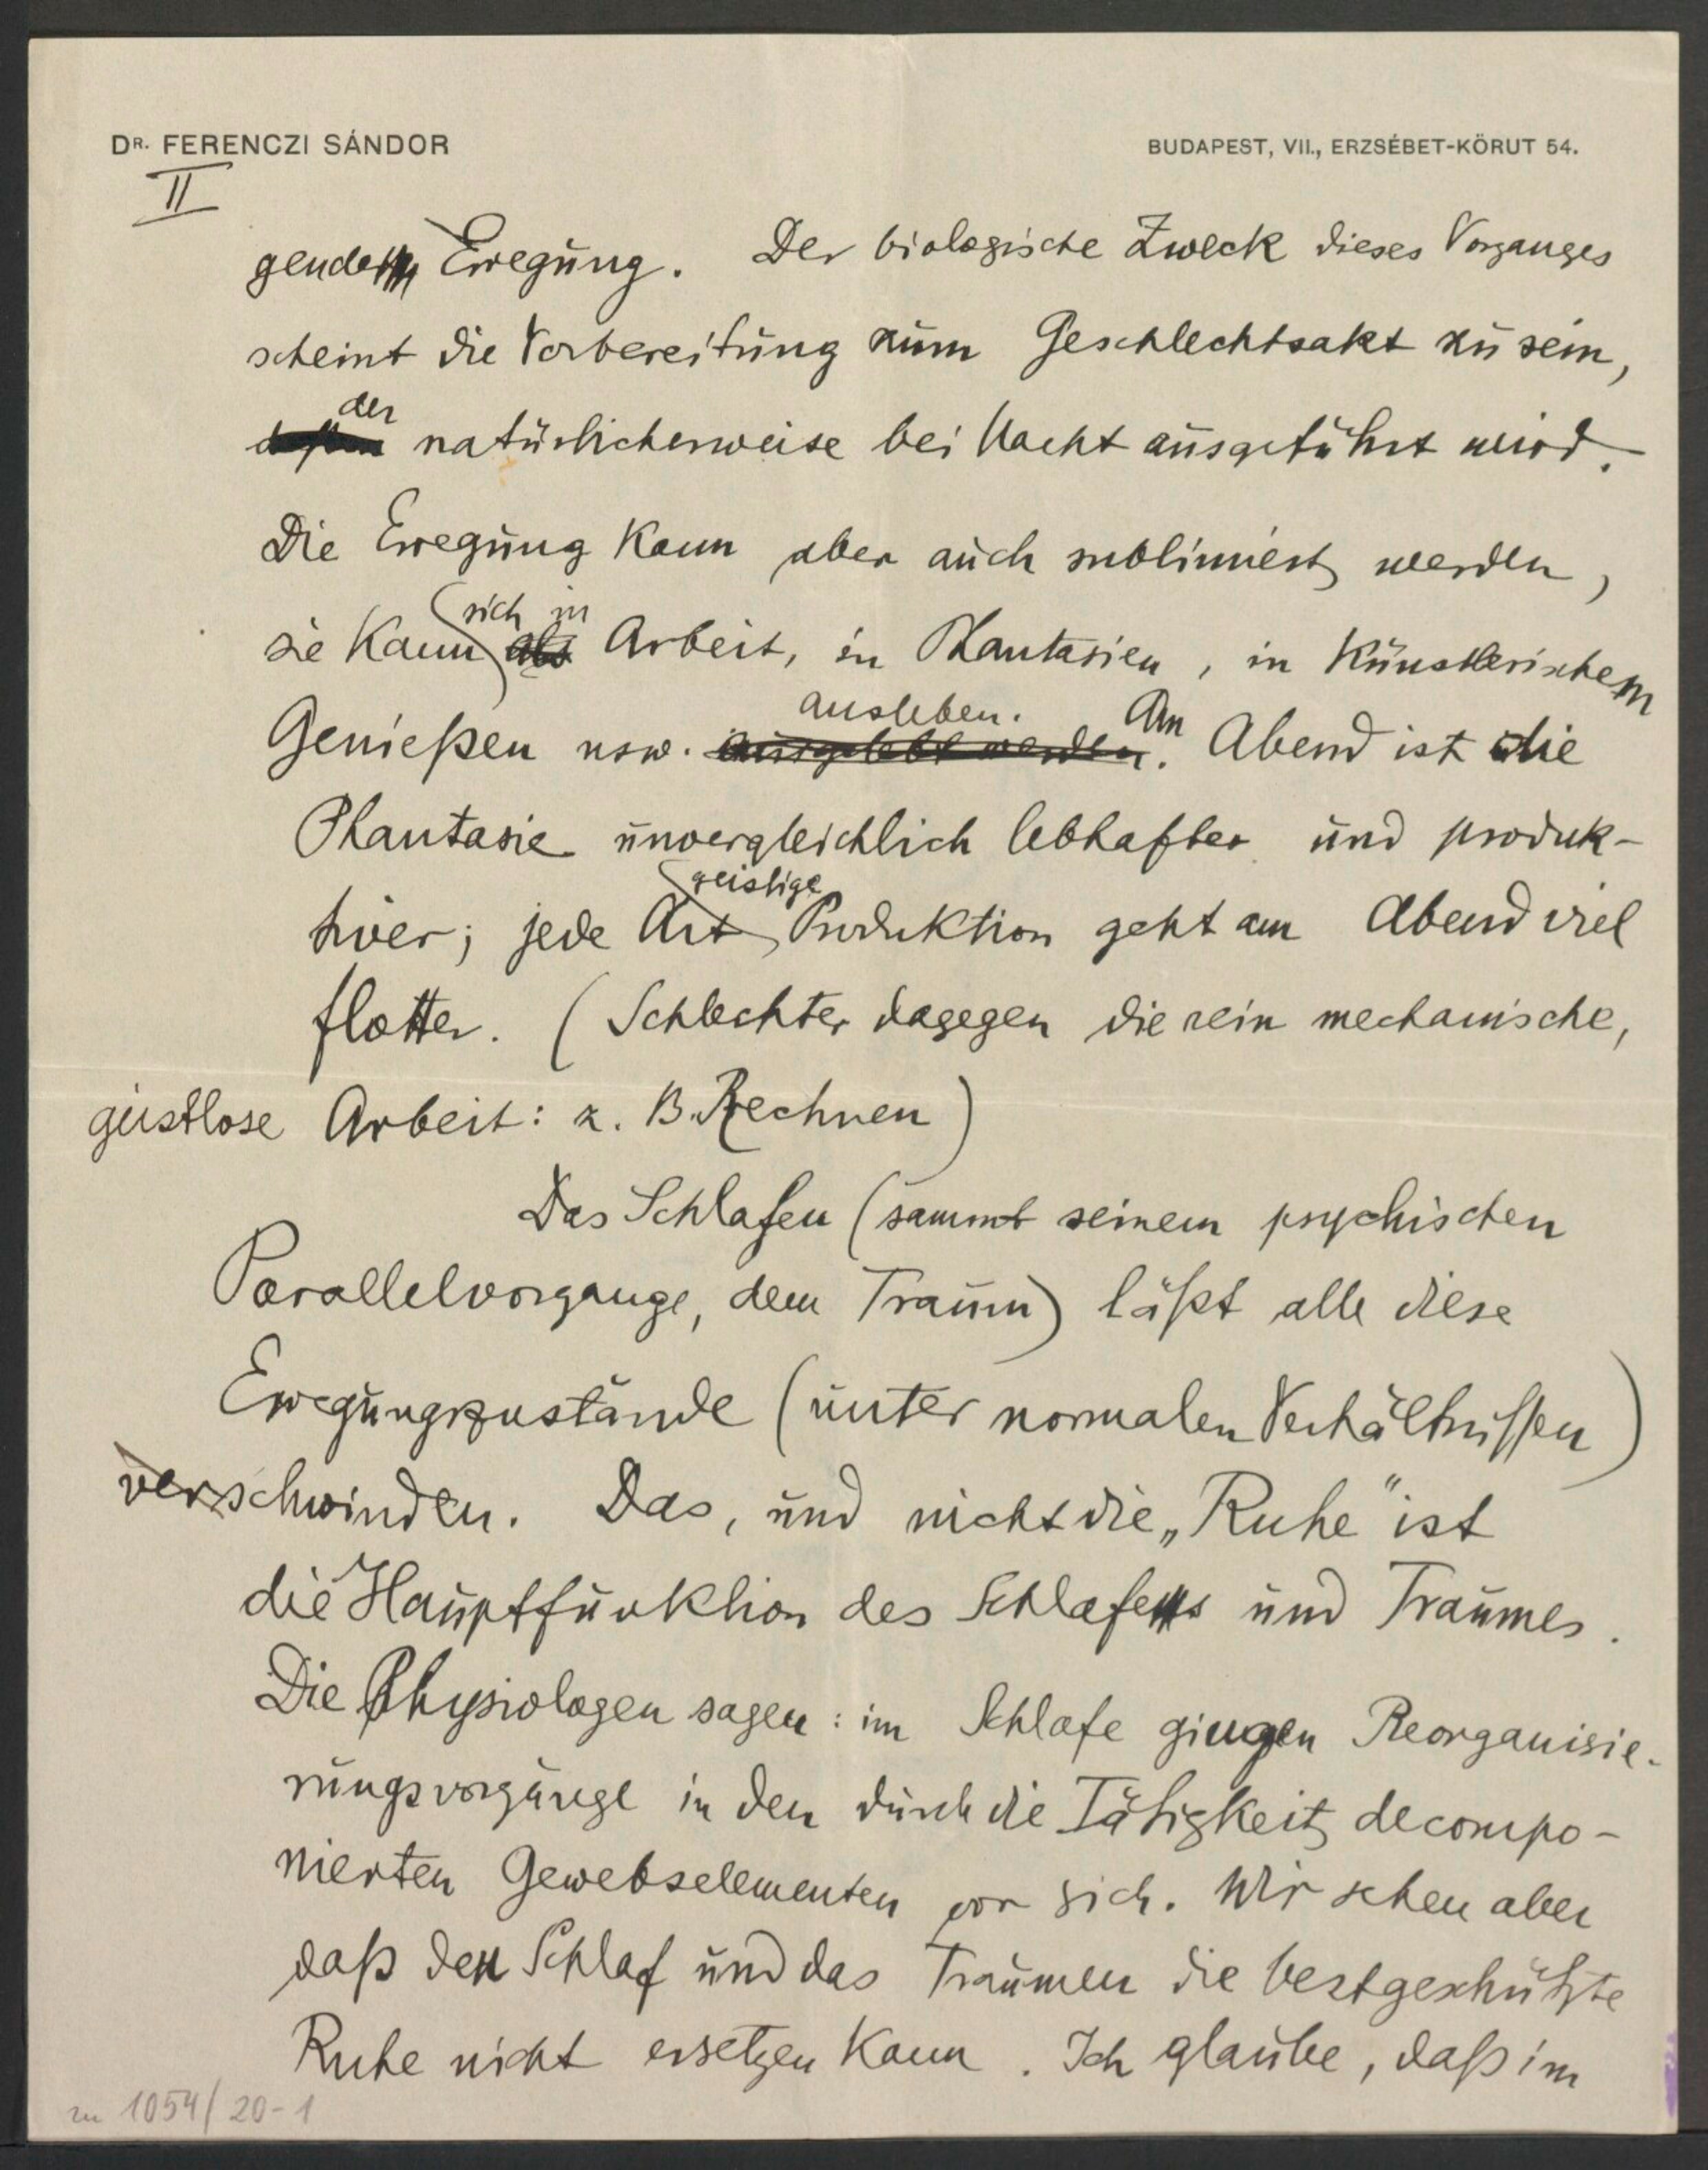 DR. FERENCZI SÁNDOR
BUDAPEST, VII., ERZSÉBET-KÖRUT 54.
II
gende Erregung. Der biologische Zweck dieses Vorganges
scheint die Vorbereitung zum Geschlechtsakt zu sein,
der
natürlicherweise bei Nacht ausgeführt wird.
Die Erregung kann aber auch sublimiert werden,
sich in
sie kann als Arbeit, in Phantasien, in künstlerischem
ausleben. Am
Genießen usw. ausgelebt werden. Abend ist die
Phantasie unvergleichlich lebhafter und produk-
geistige
tiver; jede Art Produktion geht am Abend viel
flotter. (Schlechter dagegen die rein mechanische,
geistlose Arbeit: z. B. Rechnen)
Das Schlafen (sammt seinem psychischen
Parallelvorgange, dem Traum) läßt alle diese
Erregungszustände (unter normalen Verhältnissen)
verschwinden. Das, und nicht die „Ruhe" ist
die Hauptfunktion des Schlafes und Traumes.
Die Physiologen sagen: im Schlafe gingen Reorganisie-
rungsvorgänge in den durch die Tätigkeit decompo-
nierten Gewebselementen vor sich. Wir sehen aber
daß den Schlaf und das Träumen die bestgeschützte
Ruhe nicht ersetzen kann. Ich glaube, daß im
zu 1054/20-1